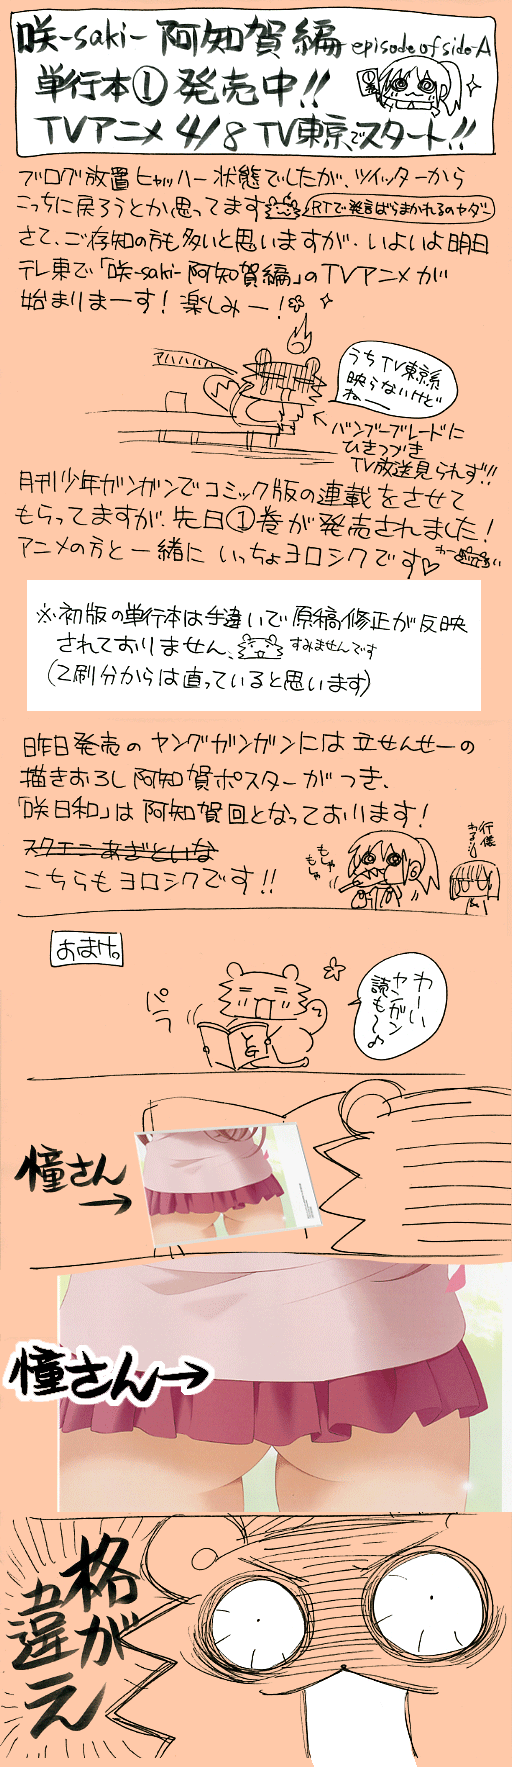 咲-saki- 阿知賀編 episode of side-A
単行本① 発売中!!
TVアニメ 4/8 TV東京でスタート!!
ブログ放置ヒャッハー状態でしたが、ツイッターから
こっちに戻ろうとか思ってます
RTで発言ばらまかれるのヤダー
さて、ご存知の方も多いと思いますが、いよいよ明日
テレ東で「咲-saki-阿知賀編」のTVアニメが
始まりまーす! 楽しみー!
アハハハハハ
うちTV東京系
映らないけど
ねー
バンブーブレードに
ひきつづき
TV放送見られず!!
月刊少年ガンガンでコミック版の連載をさせて
もらってますが、先日①巻が発売されました!
アニメの方と一緒に いっちょヨロシクです♡
わー
※初版の単行本は手違いで原稿修正が反映
されておりません、
すみませんです
(2刷分からは直っていると思います)
昨日発売の ヤングガンガンには立せんせーの
描きおろし阿知賀ポスターがつき、
「咲日和」は阿知賀回となっております!
スクエニあざといな
こちらもヨロシクです!!
もしゃ
もしゃ
行儀
わるい
おまけ。
パラ
わーい
ヤンガン
読も〜♪
憧さん
→
憧さん→
格が
違え